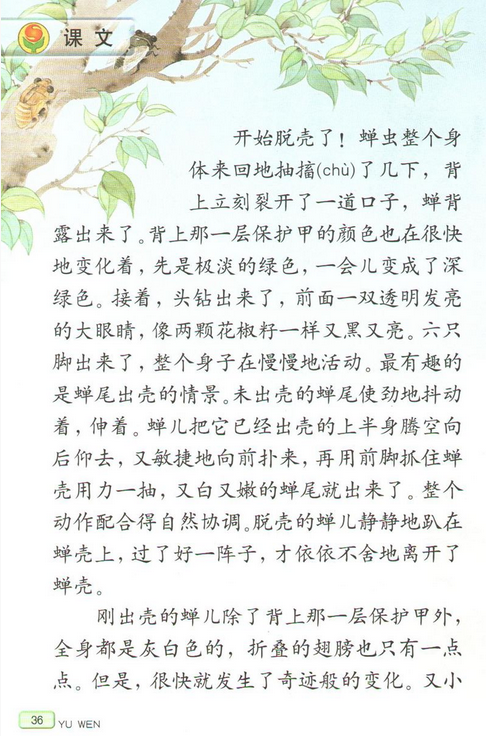 课文
开始脱壳了！蝉虫整个身
体来回地抽搐(chù)了几下，背
上立刻裂开了一道口子，蝉背
露出来了。背上那一层保护甲的颜色也在很快
地变化着，先是极淡的绿色，一会儿变成了深
绿色。接着，头钻出来了，前面一双透明发亮
的大眼睛，像两颗花椒籽一样又黑又亮。六只
脚出来了，整个身子在慢慢地活动。最有趣的
是蝉尾出壳的情景。未出壳的蝉尾使劲地抖动
着，伸着。蝉儿把它已经出壳的上半身腾空向
后仰去，又敏捷地向前扑来，再用前脚抓住蝉
壳用力一抽，又白又嫩的蝉尾就出来了。整个
动作配合得自然协调。脱壳的蝉儿静静地趴在
蝉壳上，过了好一阵子，才依依不舍地离开了
蝉壳。
刚出壳的蝉儿除了背上那一层保护甲外，
全身都是灰白色的，折叠的翅膀也只有一点
点。但是，很快就发生了奇迹般的变化。又小
36 YU WEN